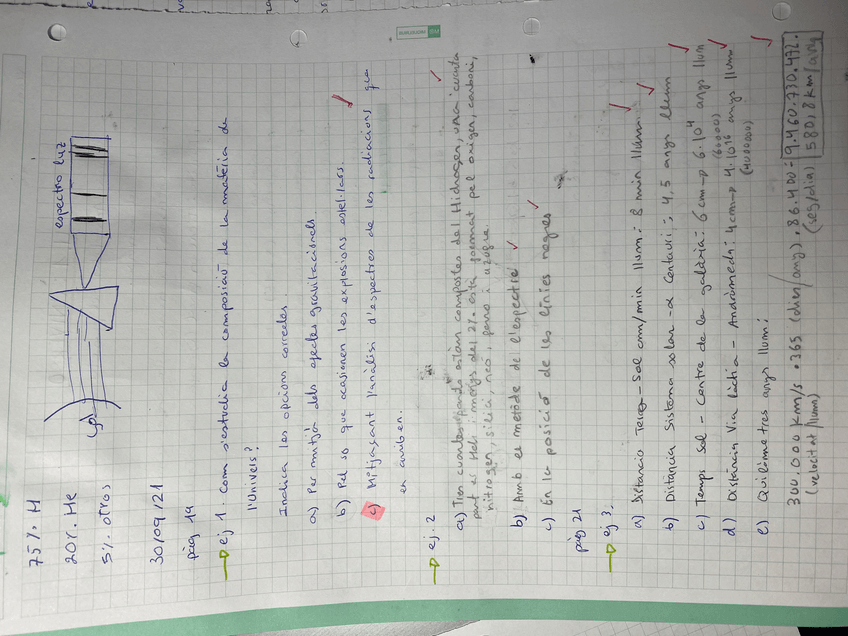 75% H
20% He
5% otros
espectro luz
30/09/21
pàg 19
ej 1 com s'estudia la composició de la matèria de
l'univers?
Indica les opcions correctes
a) Per mitjà dels efectes gravitacionals
b) Pel so que ocasionen les explosions estel·lars.
c) Mitjançant l'anàlisi d'espectres de les radiacions que
en arriben.
ej. 2
a) Tres quartes parts estan compostes del Hidrogen, una quarta
part es Heli i menys del 2% està format pel oxigen, carboni,
nitrogen, silici, neó, ferro i
b) Amb es metode de l'espectre
c) En la posició de les línies negres
pàg 21
ej 3.
a) Distància Terra - Sol cm/min llum: 8 min llum.
b) Distància Sistema solar - α Centauri: 4,5 anys llum
c) Temps Sol - Centre de la galàxia: 6 cm → 6·10⁴ anys llum
(60000)
d) Distància Via Làctia - Andròmeda: 4cm → 4·10 anys llum
(4000000)
e) Quilòmetres anys llum:
300.000 km/s · 365 (dies/any) · 86.400 = 9.460.730.472.
(velocitat/llum) (seg/dia) 580,8 km/any